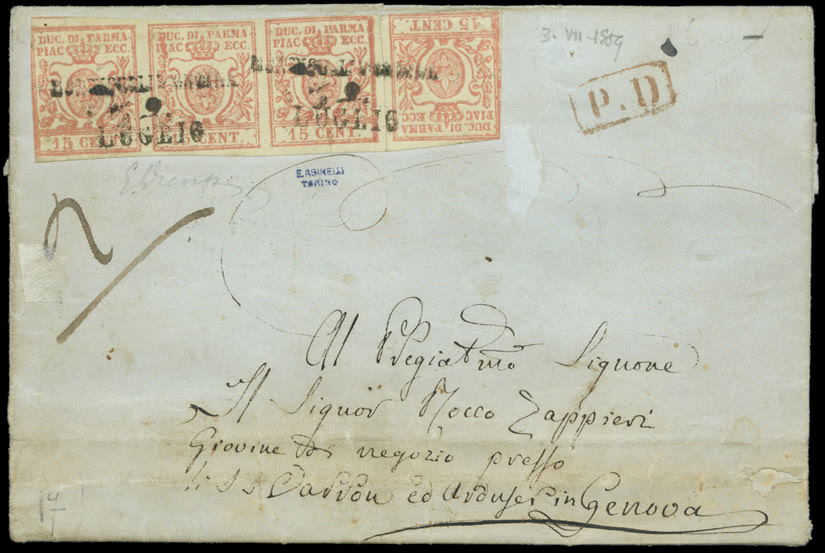 DUC. DI PARMA PIAC. ECC. 15 CENT.
DUC. DI PARMA PIAC. ECC. 15 CENT.
DUC. DI PARMA PIAC. ECC. 15 CENT.
DUC. DI PARMA PIAC. ECC. 15 CENT.
LUGLIO
LUGLIO
3. VII. 1859
P.D
E. ASINELLI
TORINO
Al Pregiatmo Signore
Il Signor Rocco Zappieri
Giovine di negozio presso
li SS ed in Genova